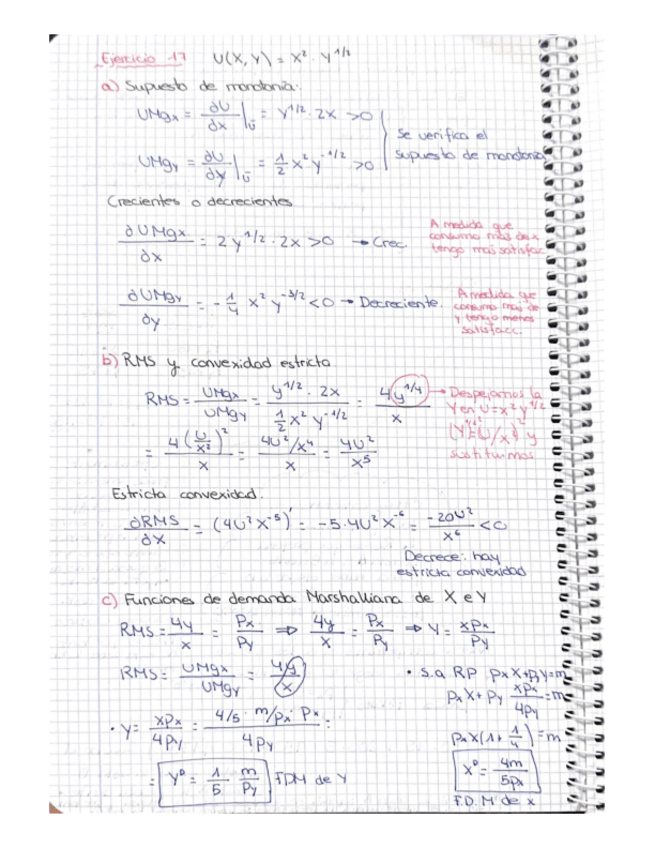 Ejercicio 17 U(X,Y) = X² · Y^1/2
a) Supuesto de monotonía:
UMgx = ∂U/∂x |ū = y^1/2 · 2x >0
UMgy = ∂U/∂y |ū = 1/2 x² y^-1/2 >0
Se verifica el
supuesto de monotonía
Crecientes o decrecientes
∂UMgx/∂x = 2y^1/2 · 2x >0 → Crec.
A medida que
consumo más de x
tengo mas satisfac
∂UMgy/∂y = -1/4 x² y^-3/2 <0 → Decreciente.
A medida que
consumo mas de
y tengo menos
satisfacc.
b) RMS y convexidad estricta
RMS = UMgx/UMgy = y^1/2 · 2x / 1/2 x² y^-1/2 = 4y^1/4 / x
→ Despejamos la
Y en U = x² y^1/2
(Y^1/2 = U/x²)² y
sustituimos
= 4(U/x²)² / x = 4U²/x⁴ / x = 4U²/x⁵
Estricta convexidad.
∂RMS/∂x = (4U²x^-5)' = -5·4U²x^-6 = -20U²/x⁶ <0
Decrece: hay
estricta convexidad
c) Funciones de demanda Marshalliana de X e Y
RMS = 4y/x = Px/Py ⇒ 4y/x = Px/Py ⇒ Y = xPx/Py
RMS = UMgx/UMgy = 4y/x
• s.a RP PxX+PyY=m
PxX + Py xPx/4Py = m
PxX(1 + 1/4) = m
X⁰ = 4m/5Px
F.D.M de x
• Y = xPx/4Py = 4/5 · m/Px · Px / 4Py =
= Y⁰ = 1/5 · m/Py FDM de Y